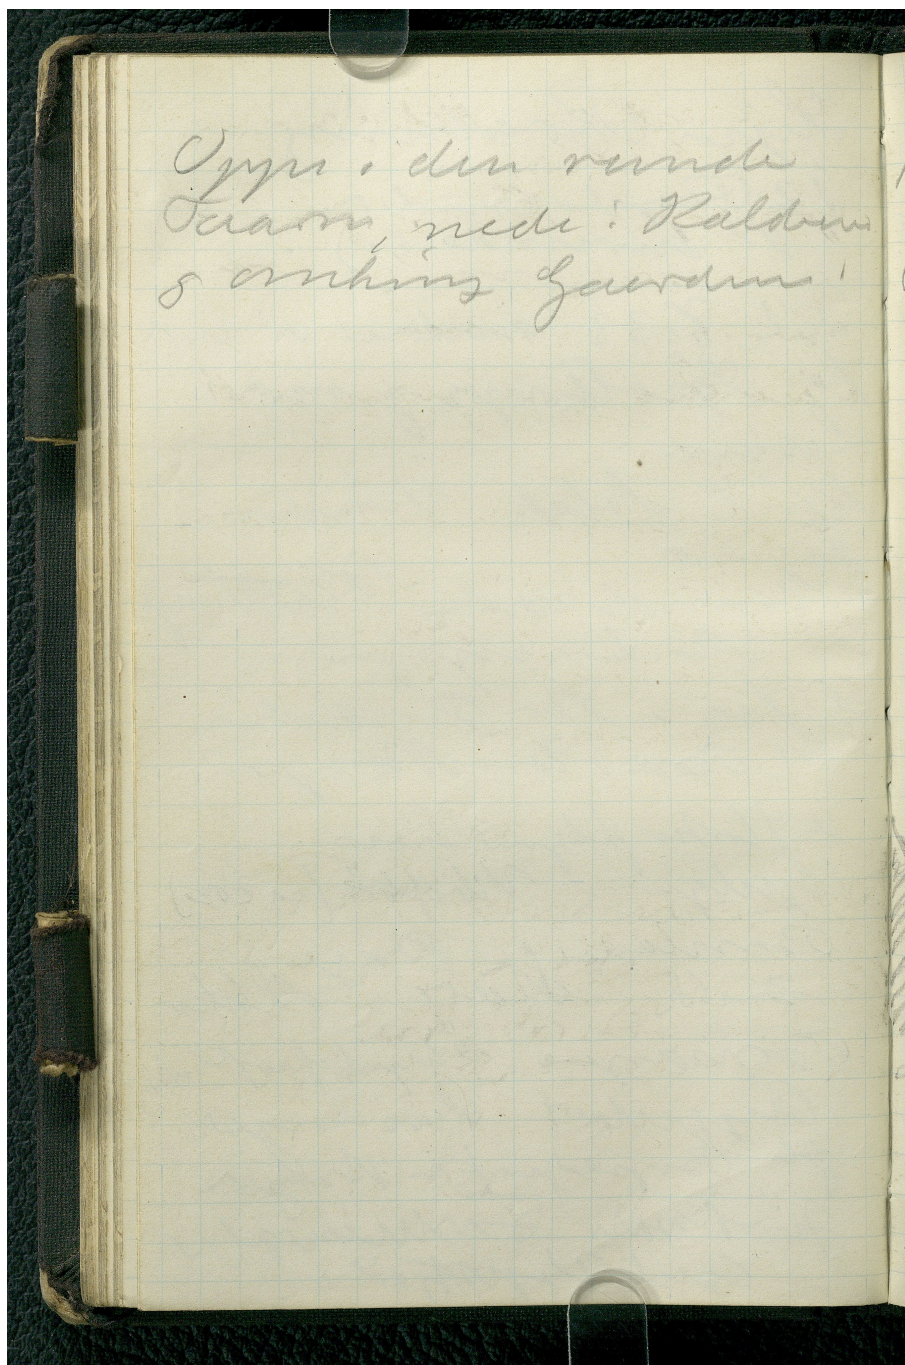 Oppe i den runde
Taarn, nede i Kælderen
& omkring Gaarden!